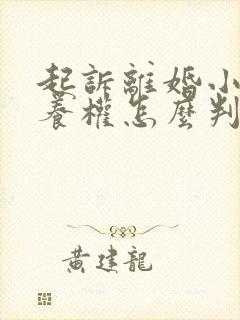 起訴離婚小
養權怎麼判
黃建龍